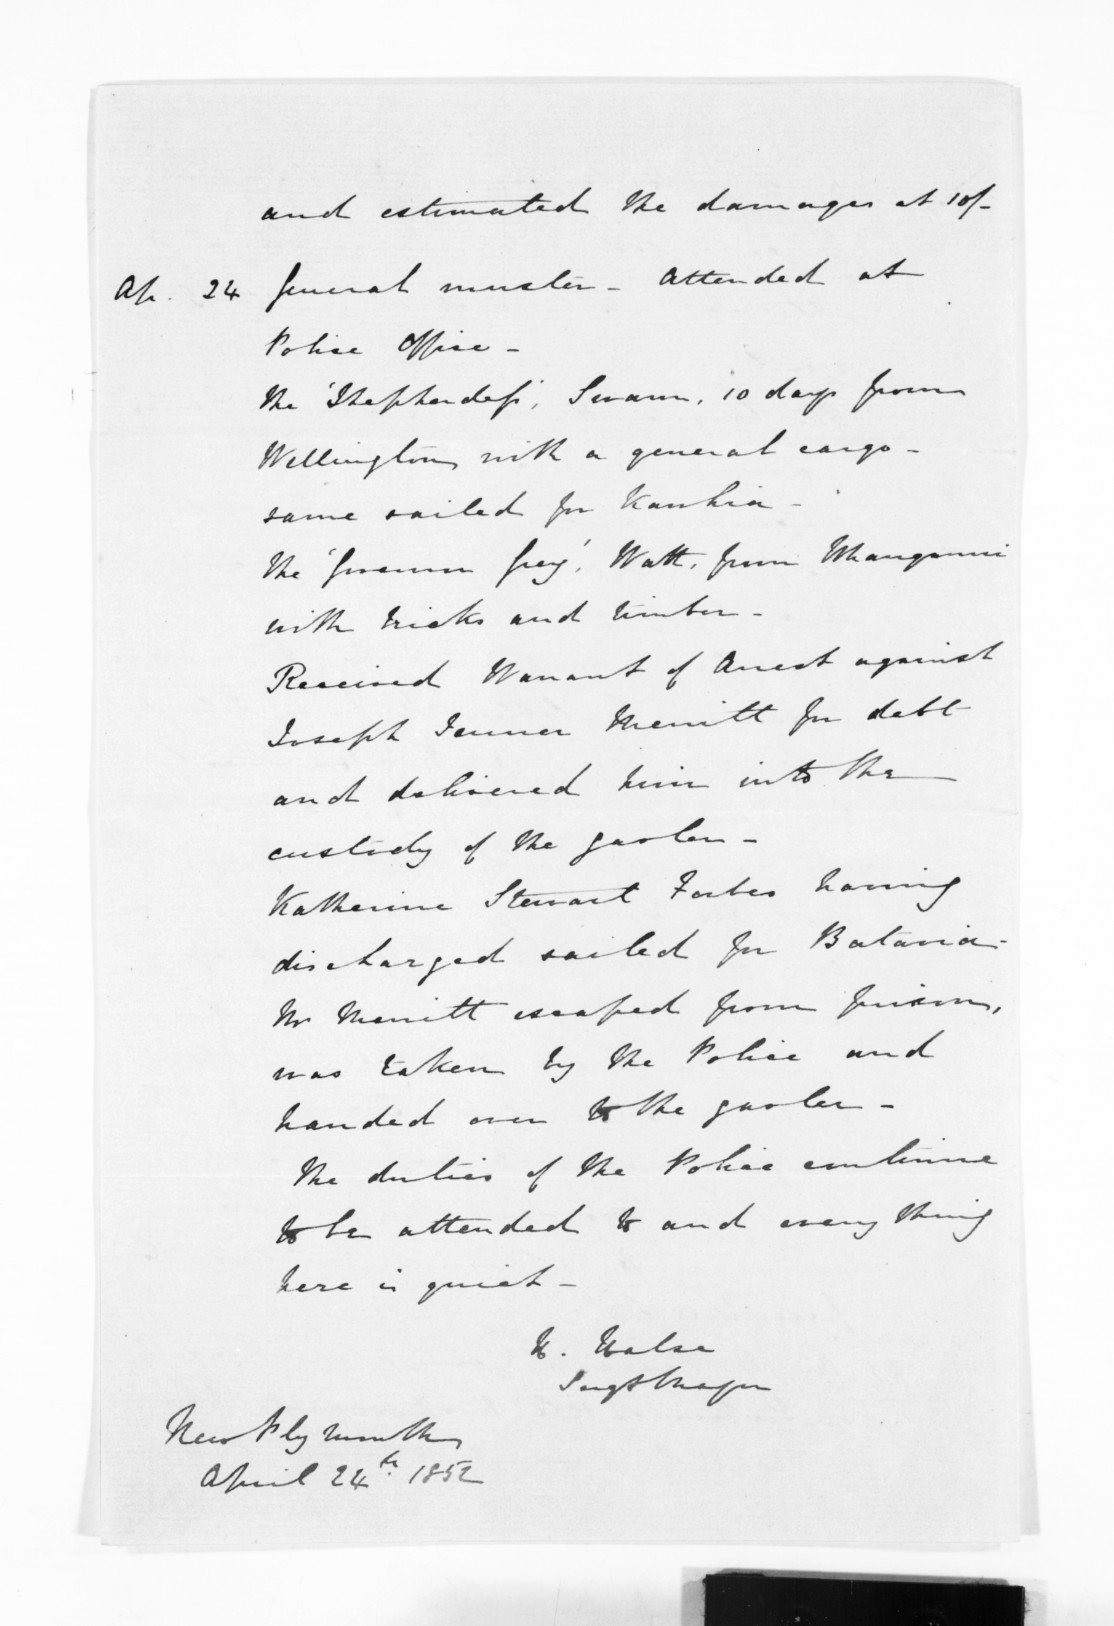 and estimated the damages at 10/-
Ap. 24 General muster - Attended at
Police Office -
The 'Shepherdess', Swann, 10 days from
Wellington, with a general cargo -
same sailed for Kawhia -
The 'Governor Grey', Watt, from Whanganui
with bricks and timber -
Received Warrant of Arrest against
Joseph Fenner Merritt for debt
and delivered him into the
custody of the gaoler -
Katherine Stewart Forbes having
discharged sailed for Batavia -
Mr Merritt escaped from prison,
was taken by the Police and
handed over to the gaoler -
The duties of the Police continue
to be attended to and every thing
here is quiet -
H. Halse
Sergt Major
New Plymouth
April 24th. 1852